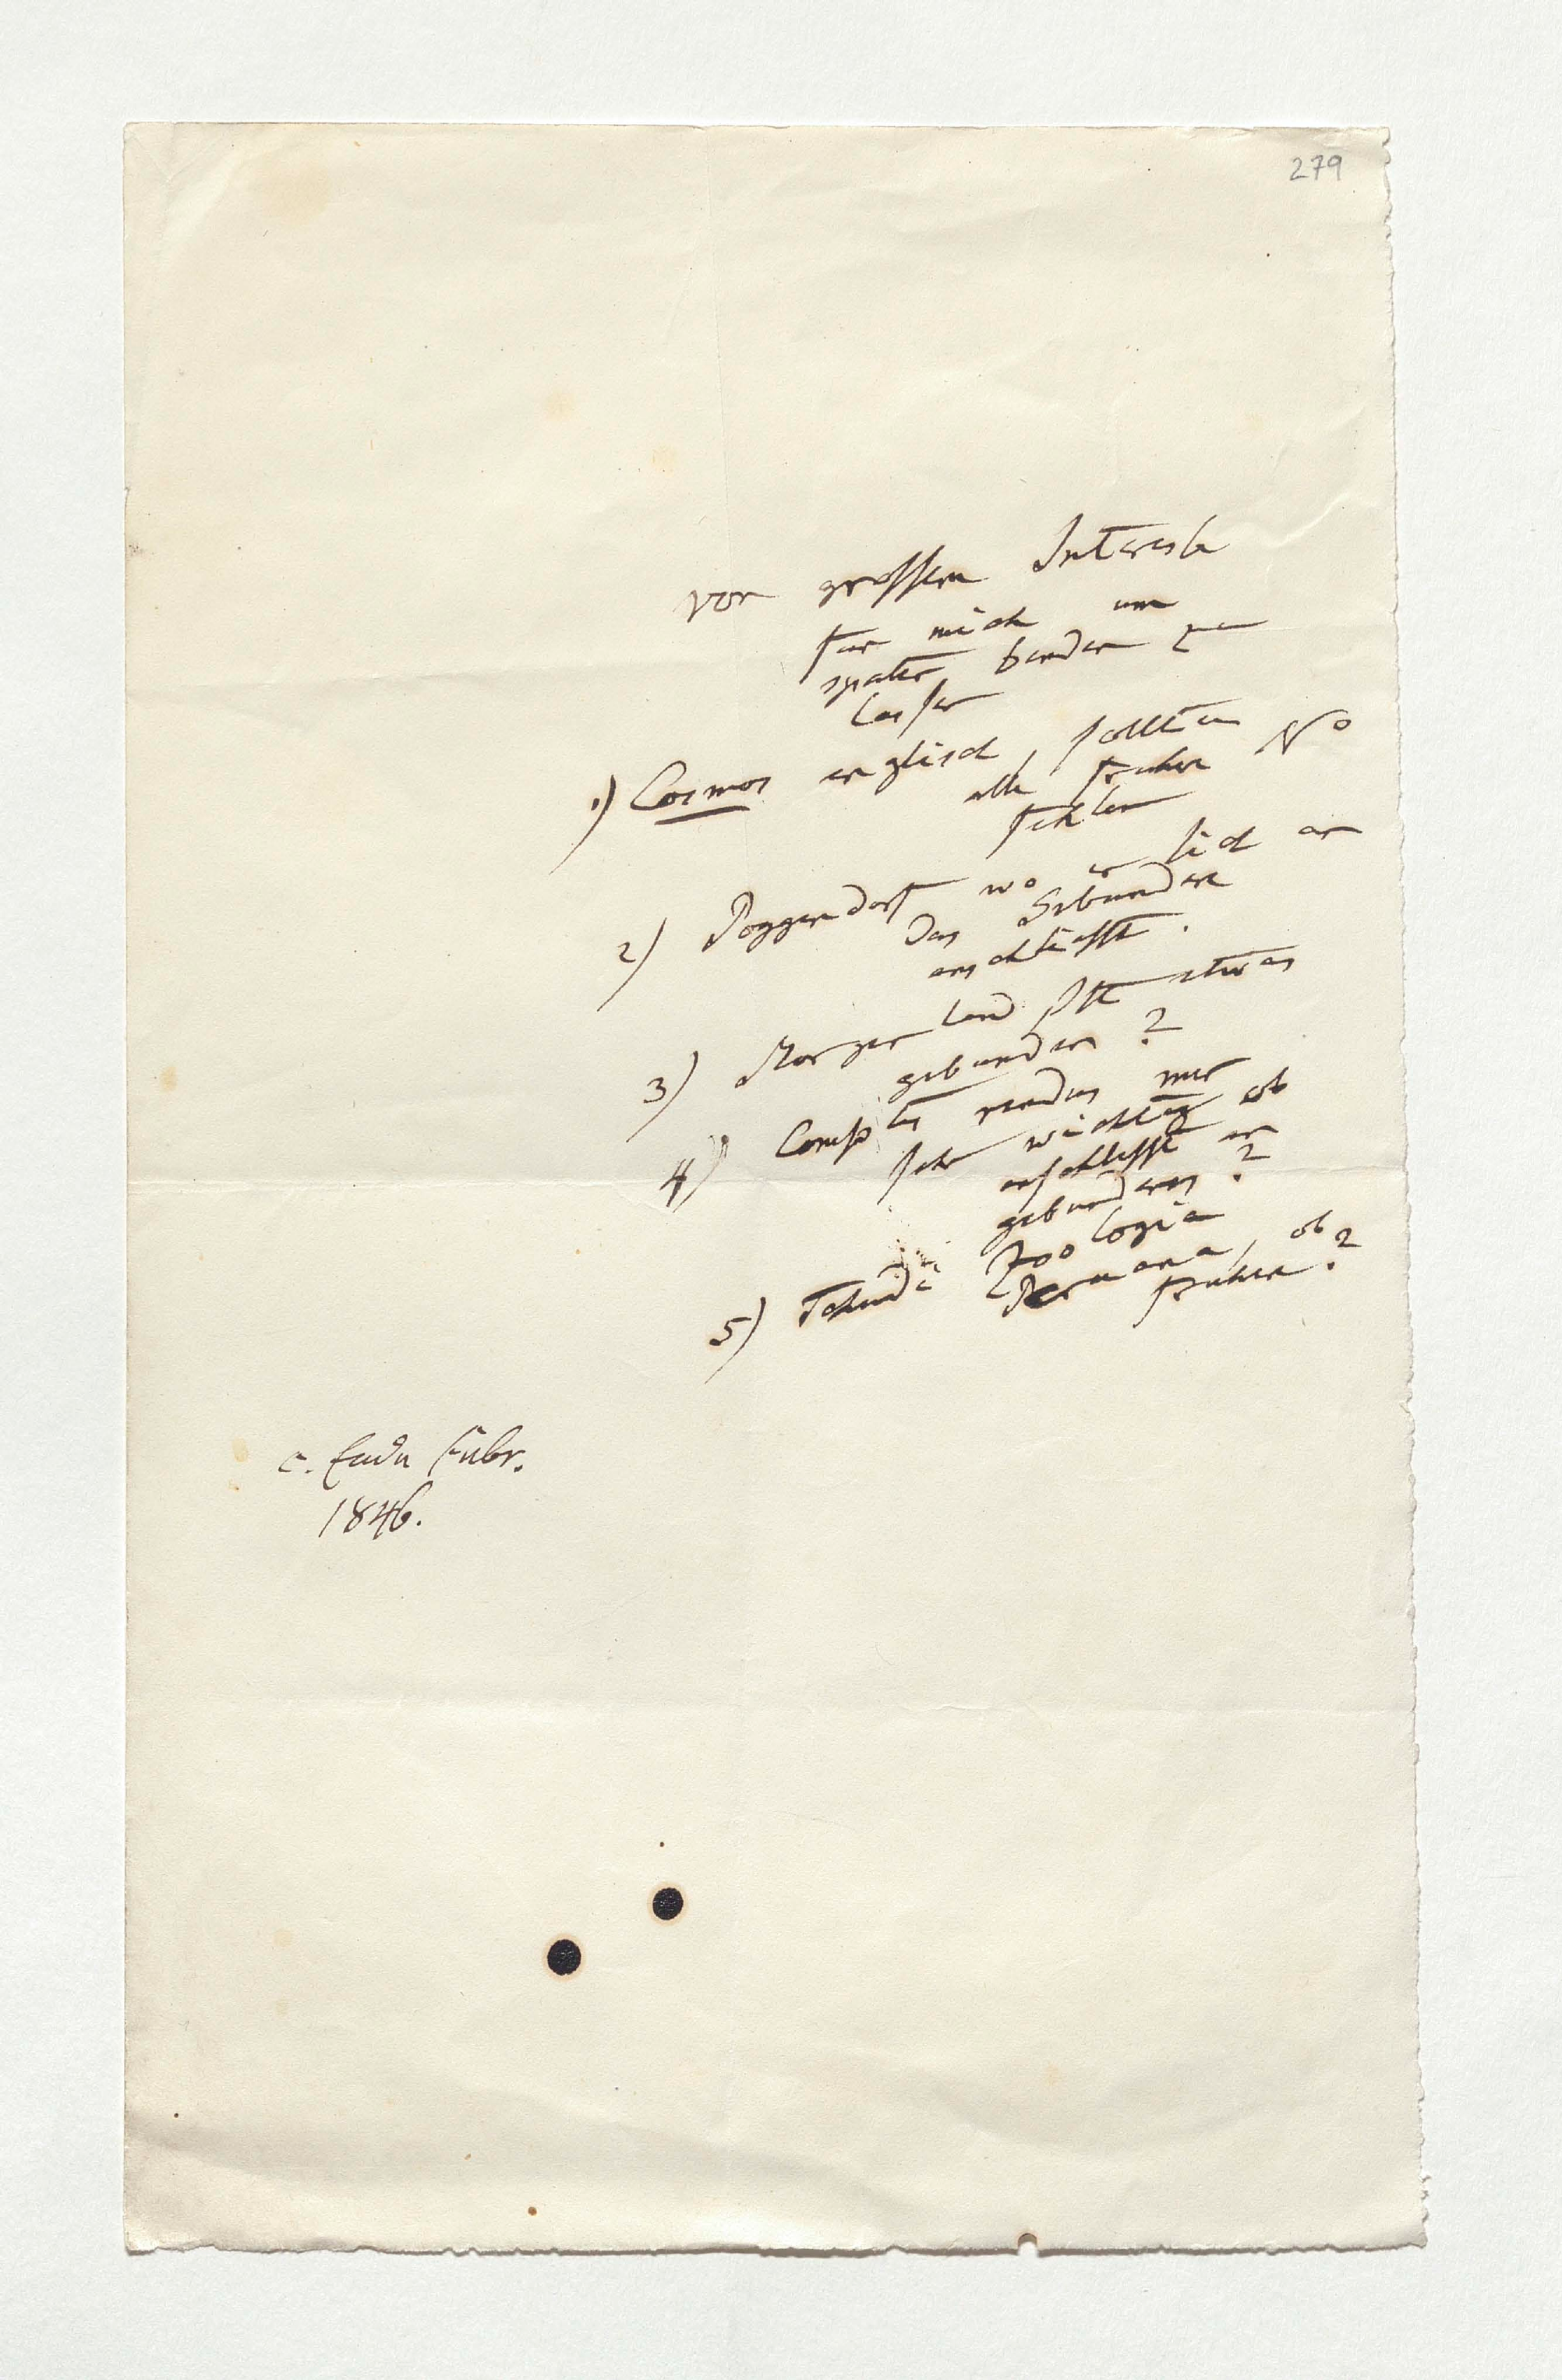 279
von grossem Interesse
für mich um
später binden zu
lassen
1) Cosmos englisch, sollten
alle frühere No
fehlen
2) Poggendorf wo er sich an
das Gebundene
anschliesst.
3) Morgenland ist etwas
gebunden?
4) Comptes rendus mir
sehr wichtig ob
anschliesst an
gebundenes?
5) Tschudi Zoologia
Peruana, ob
frühere?
c. Ende Febr.
1846.